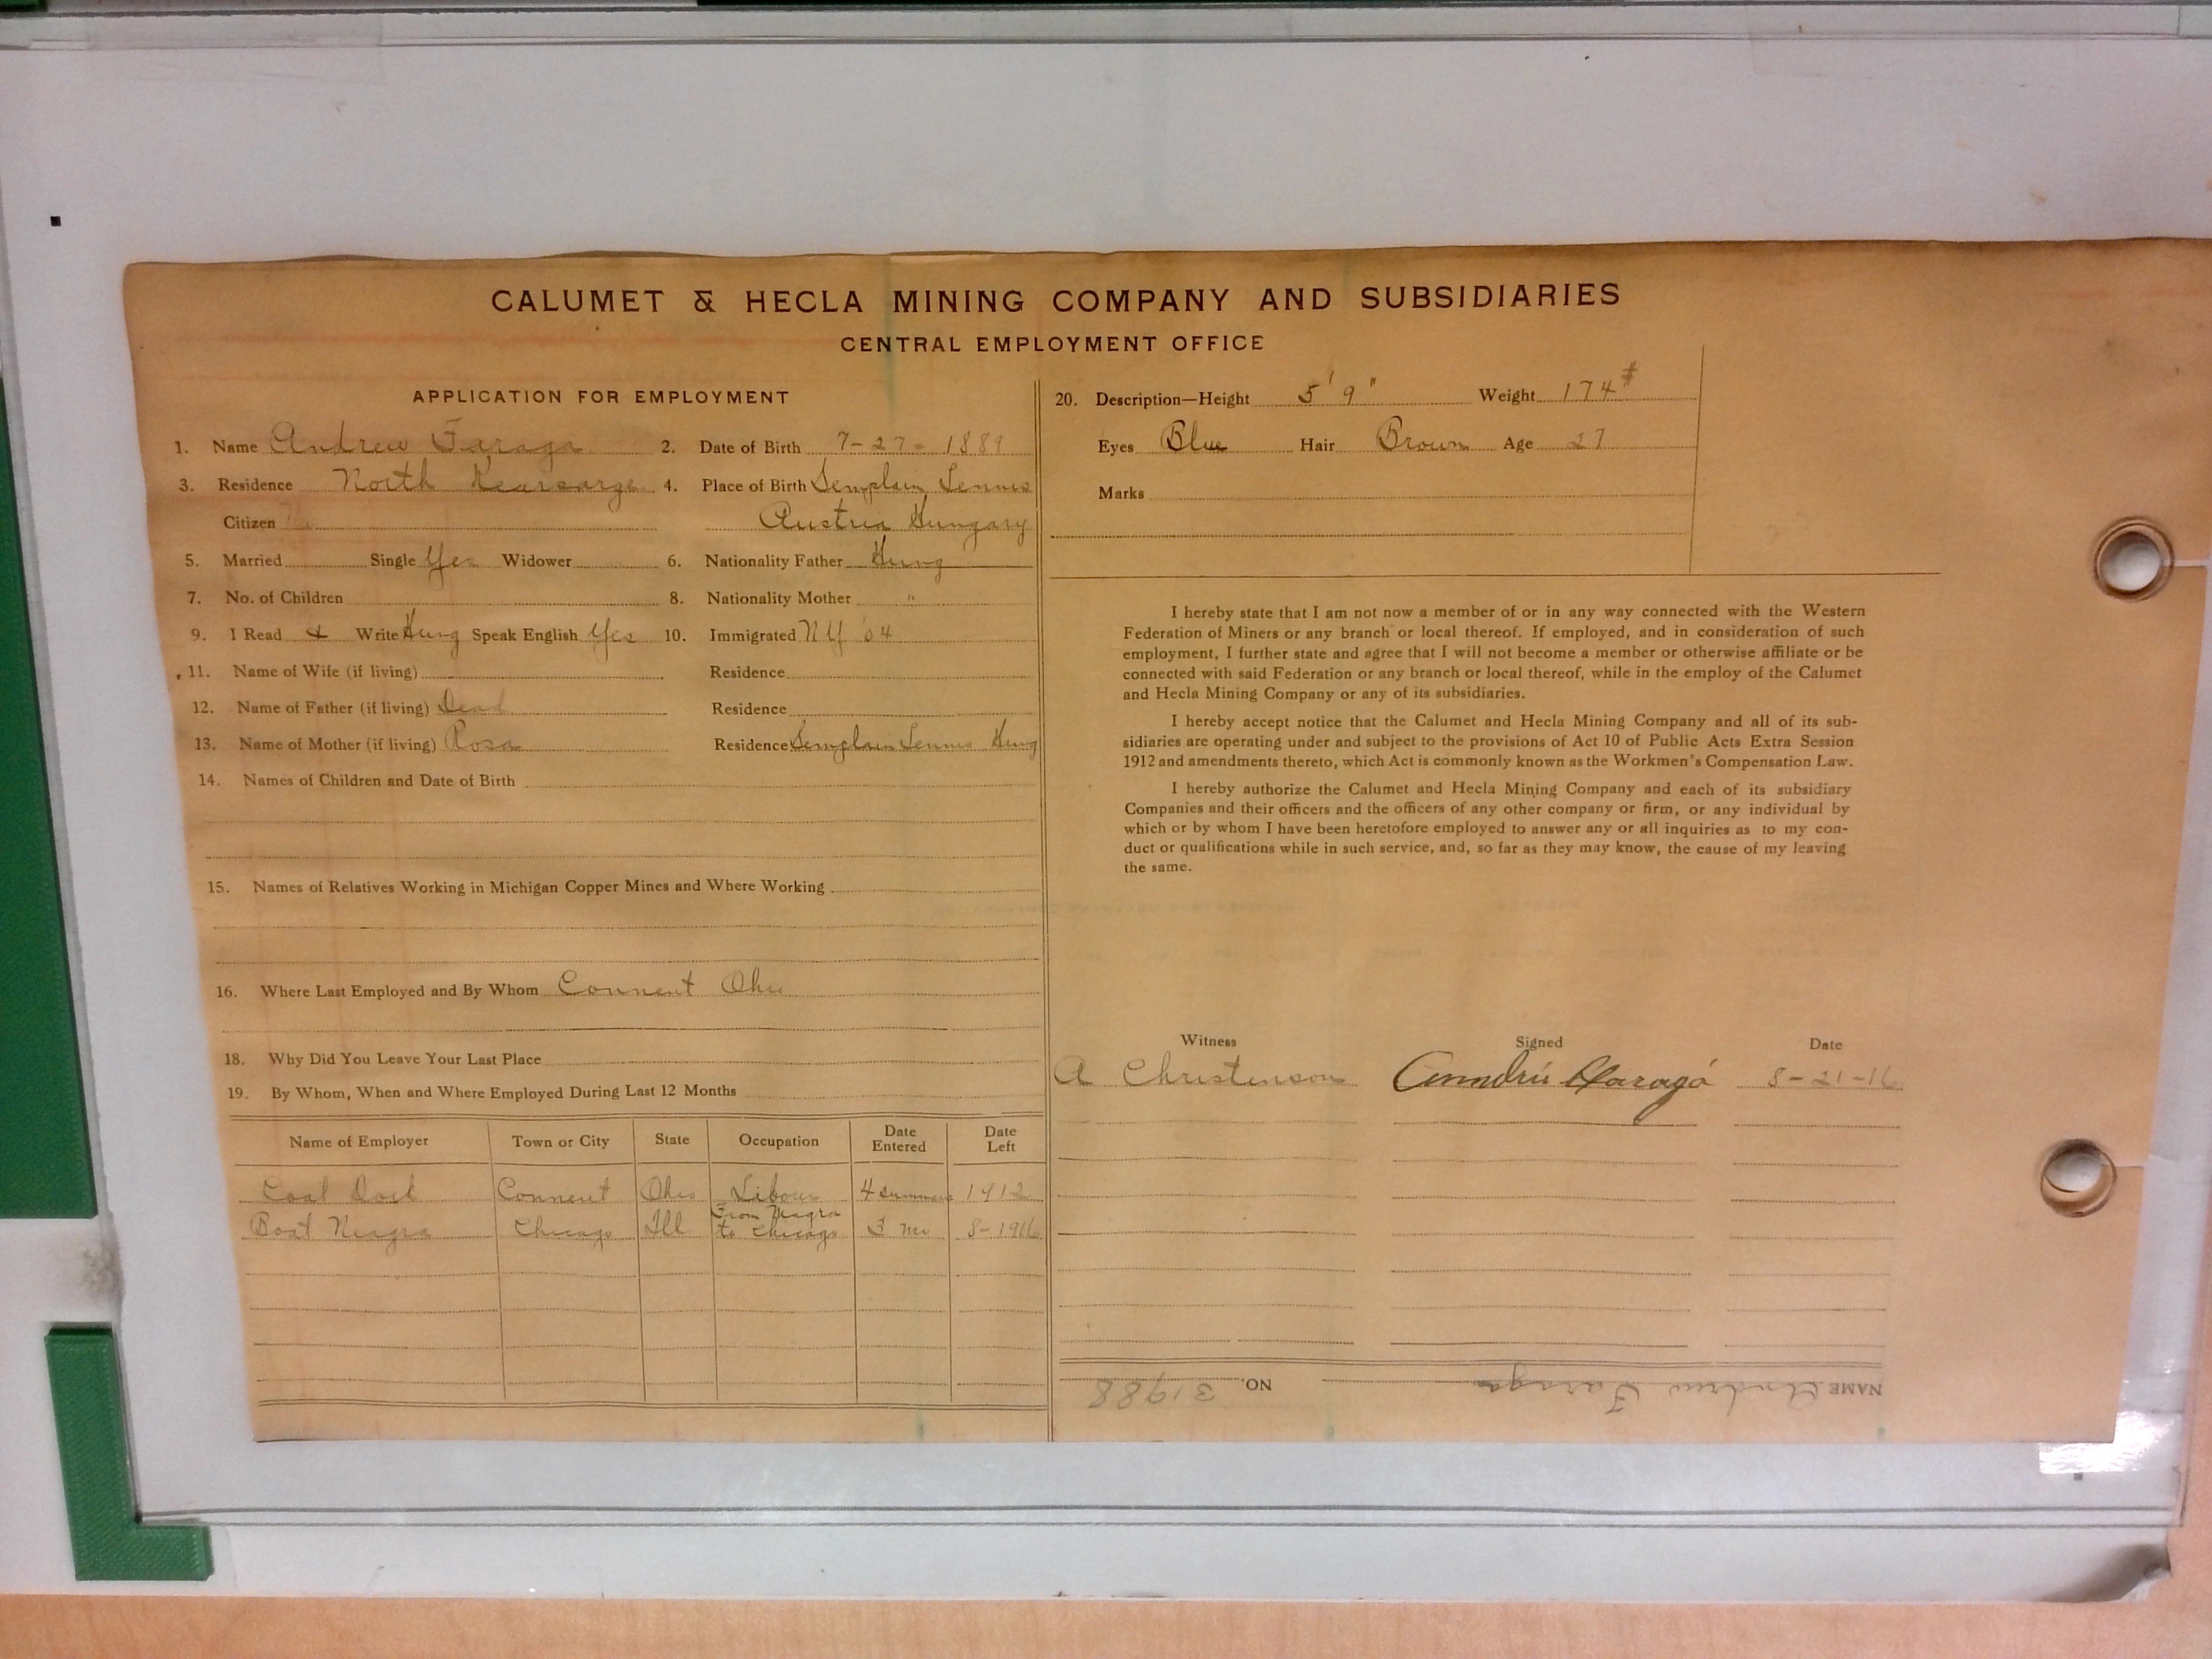 CALUMET & HECLA MINING COMPANY AND SUBSIDIARIES
CENTRAL EMPLOYMENT OFFICE
APPLICATION FOR EMPLOYMENT
1. Name Andrew Farago 2. Date of Birth 7-27-1889
3. Residence North Kearsarge 4. Place of Birth Semplain Lennis
Citizen No Austria Hungary
5. Married Single Yes Widower 6. Nationality Father Hung
7. No. of Children 8. Nationality Mother "
9. I Read & Write Hung Speak English Yes 10. Immigrated NY '04
11. Name of Wife (if living) Residence
12. Name of Father (if living) Dead Residence
13. Name of Mother (if living) Rosa Residence Semplain Lennis Hung
14. Names of Children and Date of Birth
15. Names of Relatives Working in Michigan Copper Mines and Where Working
16. Where Last Employed and By Whom Connent Ohio
18. Why Did You Leave Your Last Place
19. By Whom, When and Where Employed During Last 12 Months
Name of Employer Town or City State Occupation Date Entered Date Left
Coal Dock Connent Ohio Labour 4 summers 1912
Boat Niagra Chicago Ill From Niagra to Chicago 3 mo 8-1916
20. Description—Height 5' 9" Weight 174#
Eyes Blue Hair Brown Age 27
Marks
I hereby state that I am not now a member of or in any way connected with the Western
Federation of Miners or any branch or local thereof. If employed, and in consideration of such
employment, I further state and agree that I will not become a member or otherwise affiliate or be
connected with said Federation or any branch or local thereof, while in the employ of the Calumet
and Hecla Mining Company or any of its subsidiaries.
I hereby accept notice that the Calumet and Hecla Mining Company and all of its sub-
sidiaries are operating under and subject to the provisions of Act 10 of Public Acts Extra Session
1912 and amendments thereto, which Act is commonly known as the Workmen's Compensation Law.
I hereby authorize the Calumet and Hecla Mining Company and each of its subsidiary
Companies and their officers and the officers of any other company or firm, or any individual by
which or by whom I have been heretofore employed to answer any or all inquiries as to my con-
duct or qualifications while in such service, and, so far as they may know, the cause of my leaving
the same.
Witness Signed Date
A Christenson Anndrú Faragó 8-21-16
NAME Andrew Farago NO. 31988